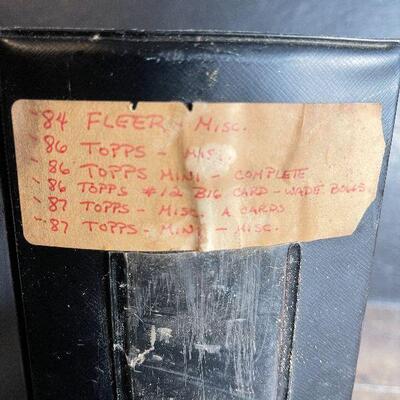 '84 FLEER - MISC.
'86 TOPPS - MISC.
'86 TOPPS MINI - COMPLETE
'86 TOPPS #12 BIG CARD - WADE BOGGS
'87 TOPPS - MISC. A CARDS
'87 TOPPS - MINI - MISC.